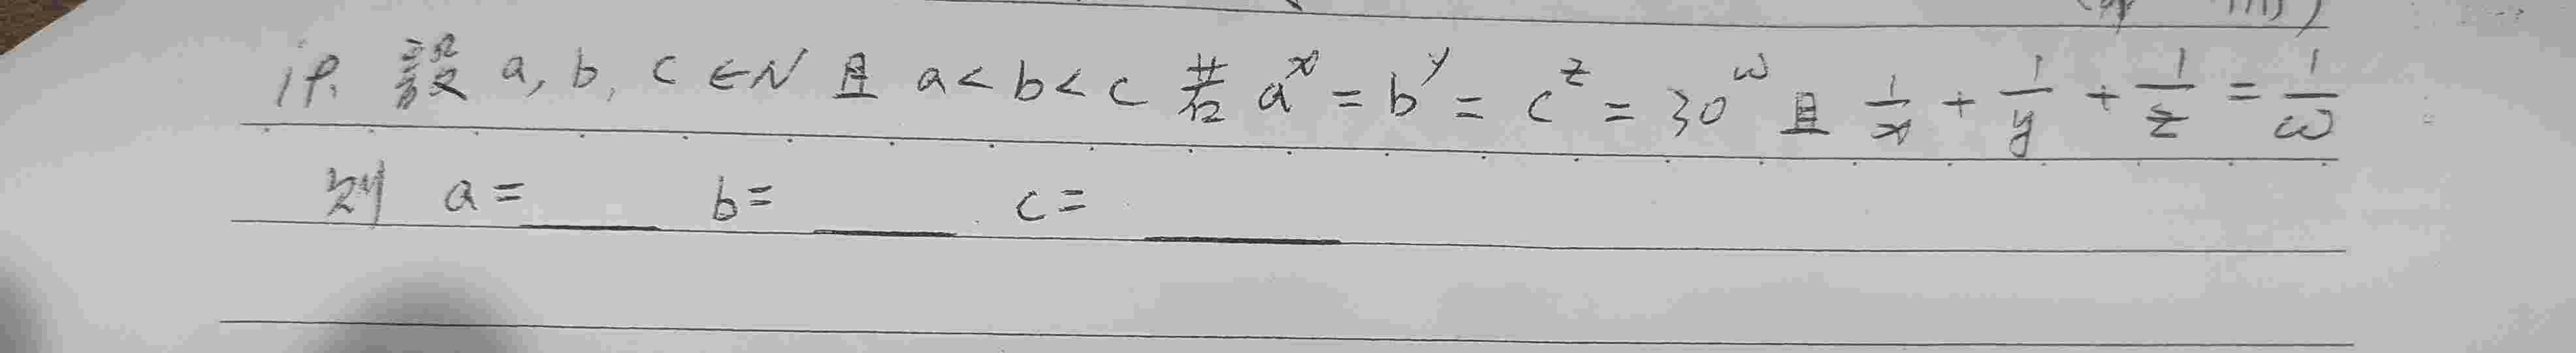 設 a, b, c ∈ N 且 a < b < c 若 a^x = b^y = c^z = 30^ω 且 1/x + 1/y + 1/z = 1/ω
則 a = ____ b = ____ c = ____